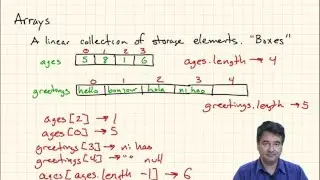 Arrays
A linear collection of storage elements. "Boxes"
0 1 2 3
ages 5 8 1 6 ages.length → 4
0 1 2 3 4
greetings hello bonjour hola ni hao
greetings.length → 5
ages[2] → 1
ages[0] → 5
greetings[3] → ni hao
greetings[4] → "" null
ages[ages.length -1] → 6